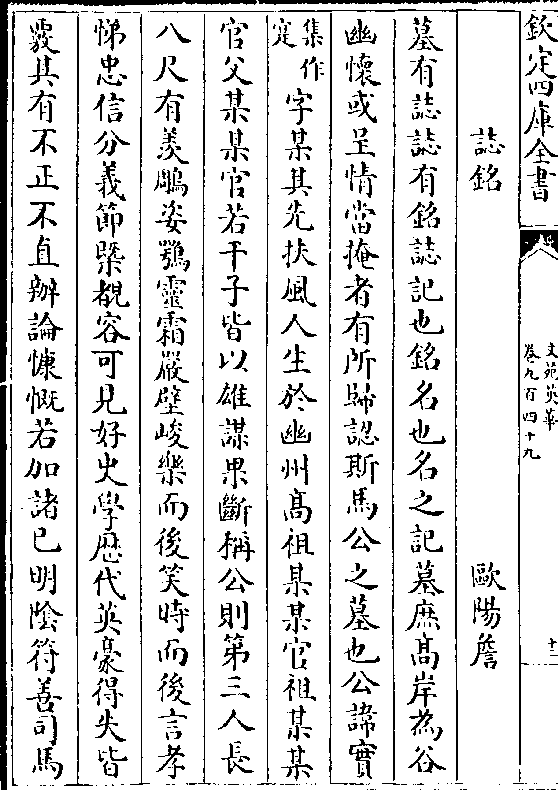 欽定四庫全書
文苑英華
卷九百四十九
十二
誌銘
歐陽詹
墓有誌誌有銘誌記也銘名也名之記墓庶髙岸為谷
幽懷或呈情當掩者有所歸認斯馬公之墓也公諱實
集作寔字某其先扶風人生於幽州髙祖某某官祖某某
官父某某官若干子皆以雄謀果斷稱公則第三人長
八尺有羡鵰姿鶚靈霜嚴壁峻樂而後笑時而後言孝
悌忠信分義節槩覩容可見好史學歴代英豪得失皆
覈其有不正不直辦論慷慨若加諸已明陰符善司馬